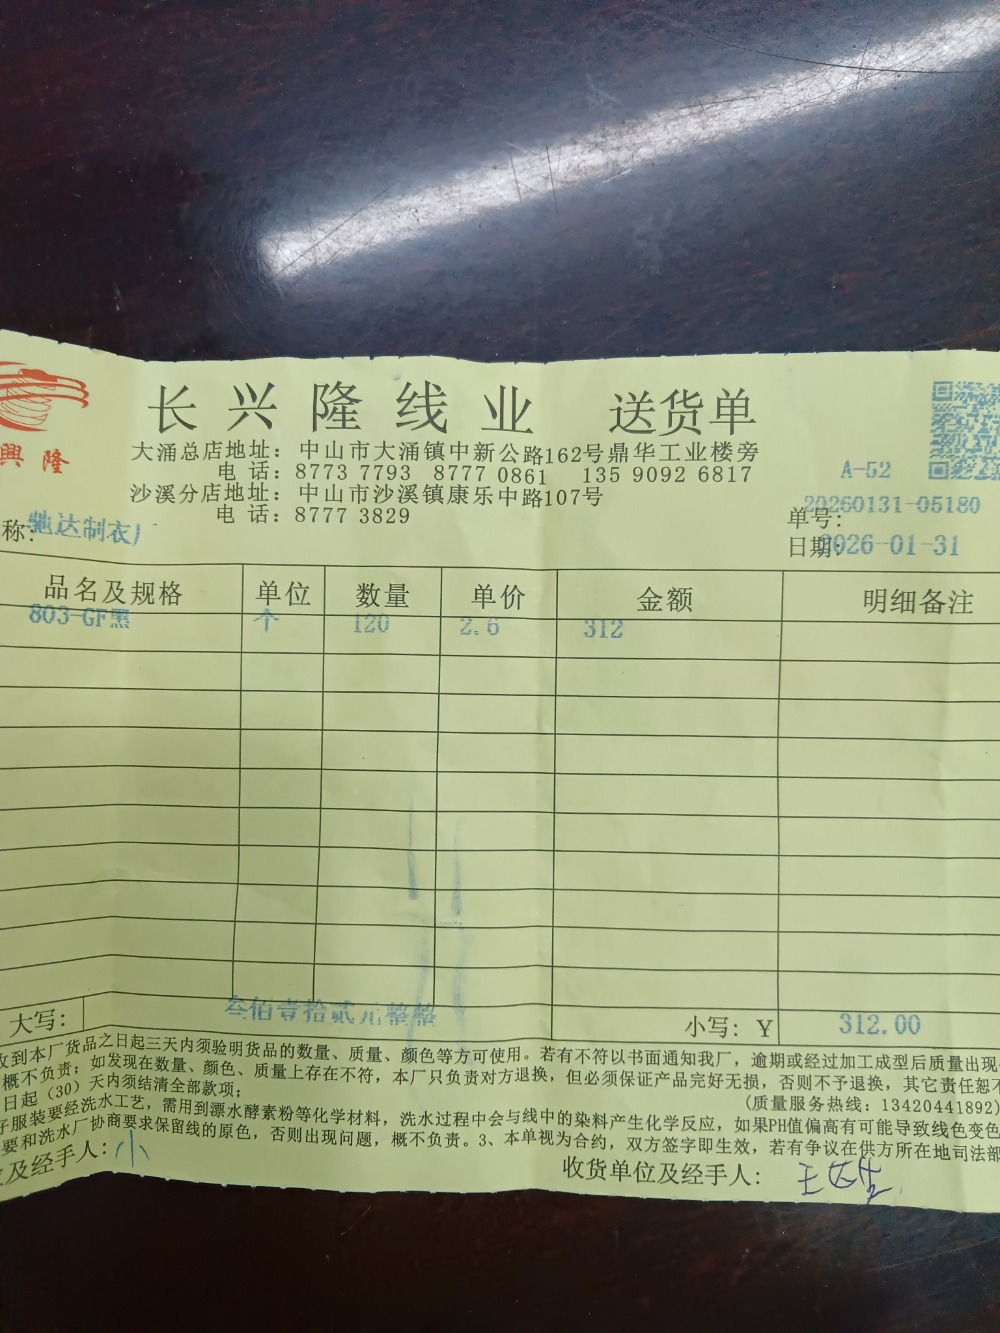 长兴隆线业 送货单
興隆
大涌总店地址：中山市大涌镇中新公路162号鼎华工业楼旁
电 话：8773 7793 8777 0861 135 9092 6817
A-52
沙溪分店地址：中山市沙溪镇康乐中路107号
电 话：8777 3829
单号：20260131-05180
称：驰达制衣厂
日期：2026-01-31
品名及规格 单位 数量 单价 金额 明细备注
803-GF黑 个 120 2.6 312
大写： 叁佰壹拾贰元整整 小写：Y 312.00
收到本厂货品之日起三天内须验明货品的数量、质量、颜色等方可使用。若有不符以书面通知我厂，逾期或经过加工成型后质量出现
概不负责；如发现在数量、颜色、质量上存在不符，本厂只负责对方退换，但必须保证产品完好无损，否则不予退换，其它责任恕不
日起（30）天内须结清全部款项； (质量服务热线：13420441892)
服装要经洗水工艺，需用到漂水酵素粉等化学材料，洗水过程中会与线中的染料产生化学反应，如果PH值偏高有可能导致线色变色
要和洗水厂协商要求保留线的原色，否则出现问题，概不负责。3、本单视为合约，双方签字即生效，若有争议在供方所在地司法部
及经手人：小 收货单位及经手人：